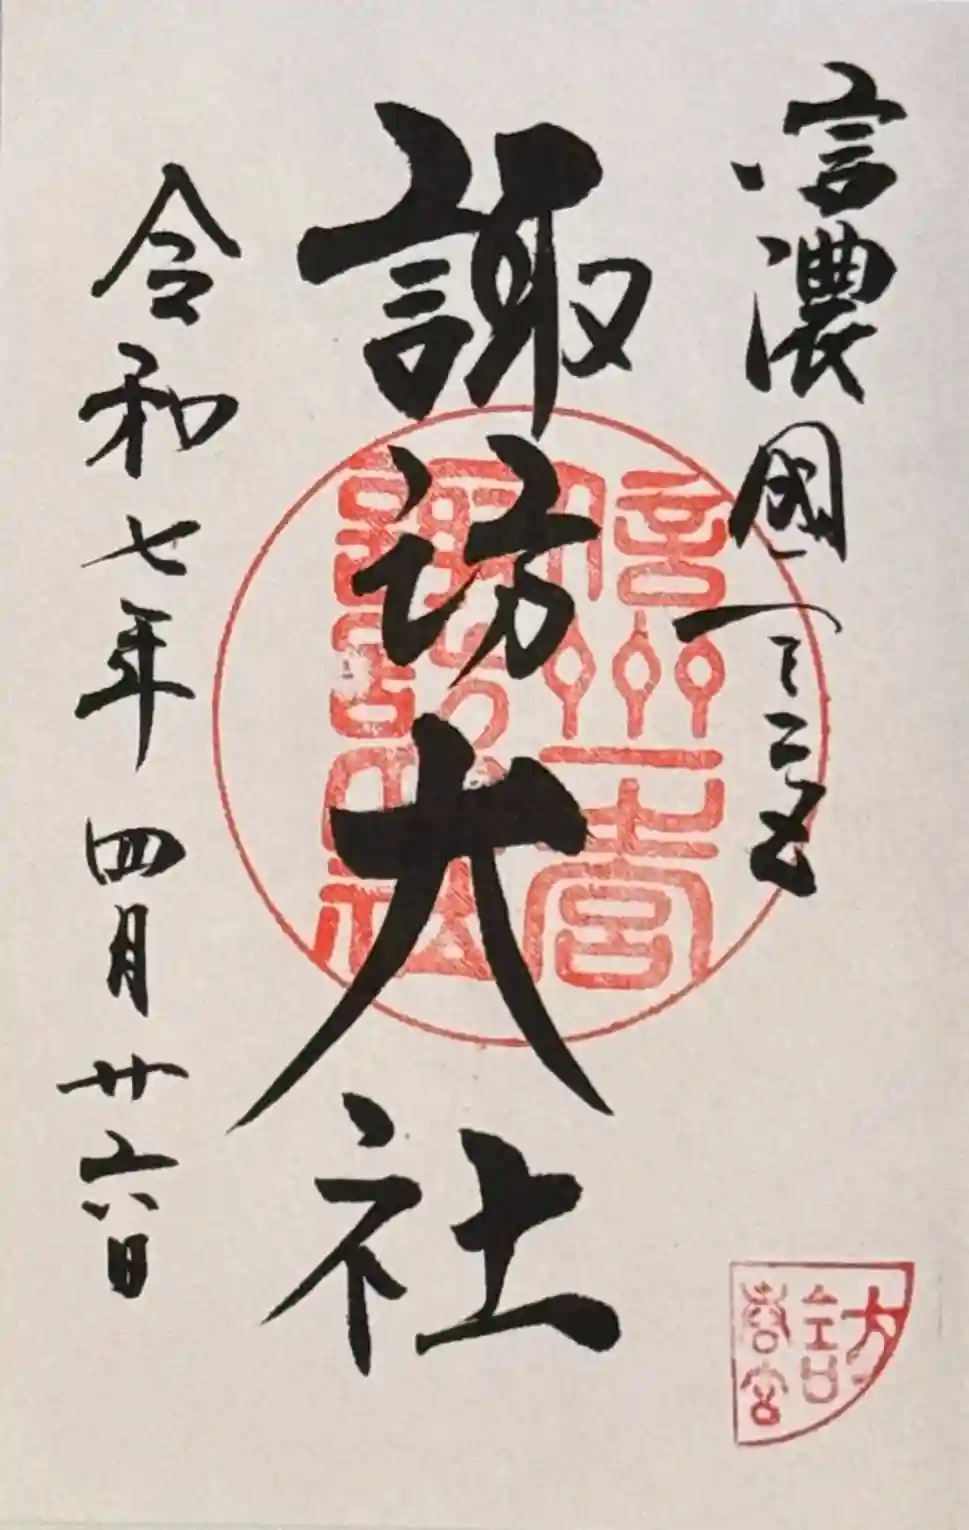 信濃國一之宮
諏訪大社
令和七年四月廿六日
信州一之宮
諏訪大社
春宮